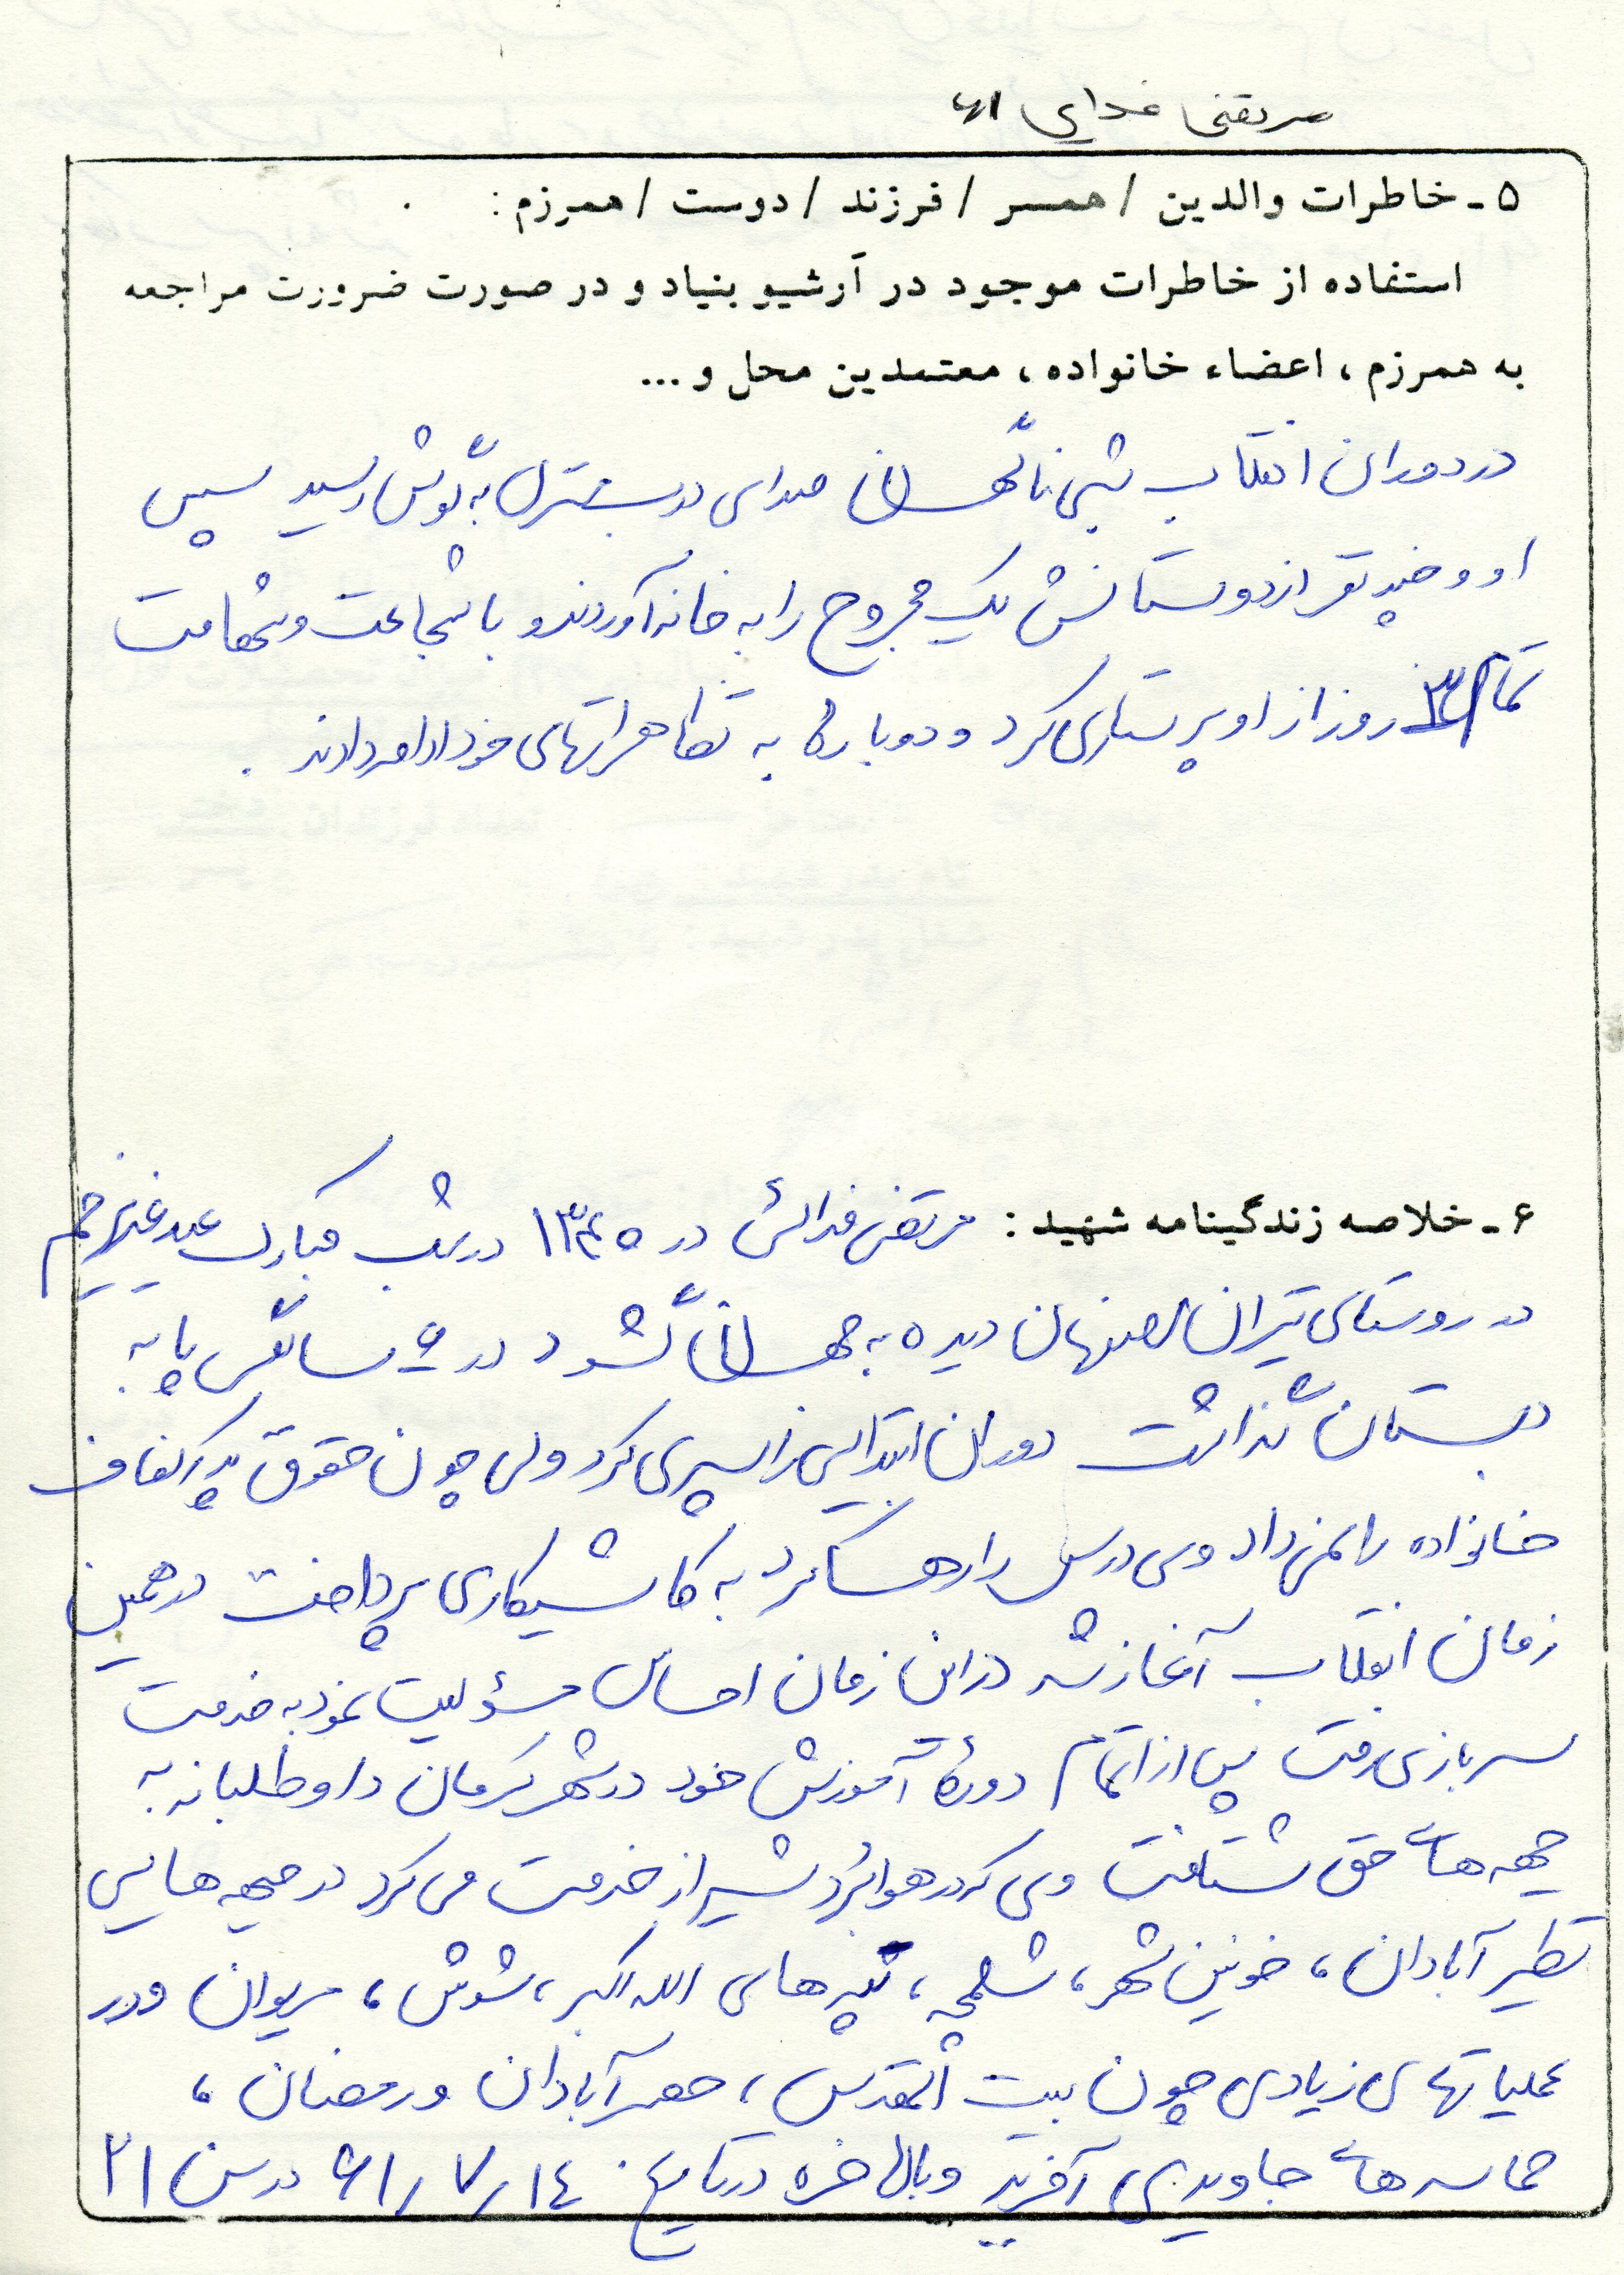 مرتضی فدایی ۶۱
۵ - خاطرات والدین / همسر / فرزند / دوست / همرزم :
استفاده از خاطرات موجود در آرشیو بنیاد و در صورت ضرورت مراجعه
به همرزم ، اعضاء خانواده ، معتمدین محل و ...
در دوران انقلاب شبی ناگهان صدای در منزل به گوش رسید سپس
او و چند نفر از دوستانش یک مجروح را به خانه آوردند و با شجاعت و شهامت
تمام ۳ روز از او پرستاری کرد و دوباره به تظاهراتهای خود ادامه دادند .
۶ - خلاصه زندگینامه شهید : مرتضی فدائی در ۱۳۴۵ در شب مبارک عید غدیر خم
در روستای تیران اصفهان دیده به جهان گشود در ۶ سالگی پا به
دبستان گذاشت دوران ابتدایی را سپری کرد ولی چون حقوق پدر کفاف
خانواده را نمی داد وی درس را رها کرد به کاشیکاری پرداخت در همین
زمان انقلاب آغاز شد در این زمان احساس مسؤلیت نمود به خدمت
سربازی رفت پس از اتمام دورهٔ آموزش خود در شهر کرمان داوطلبانه به
جبهه های حق شتافت وی که در هوابرد شیراز خدمت می کرد در جبهه هایی
نظیر آبادان ، خونین شهر ، شلمچه ، تپه های الله اکبر ، شوش ، مریوان و در
عملیاتهای زیادی چون بیت المقدس ، حصر آبادان و رمضان ،
حماسه های جاویدی آفرید و بالاخره در تاریخ ۶۱/۷/۱۴ در سن ۲۱